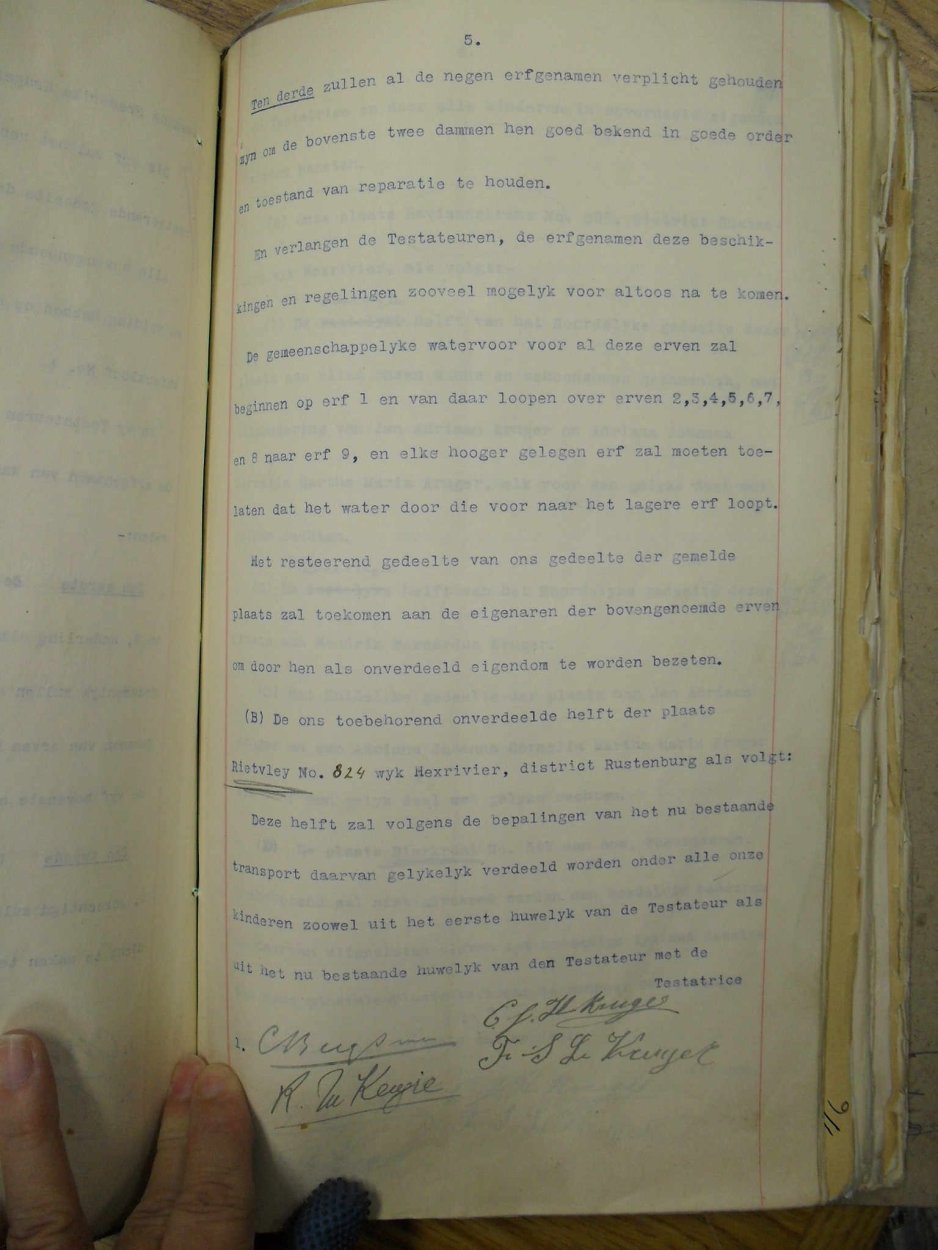 5.
Ten derde zullen al de negen erfgenamen verplicht gehouden
zyn om de bovenste twee dammen hen goed bekend in goede order
en toestand van reparatie te houden.
En verlangen de Testateuren, de erfgenamen deze beschik-
kingen en regelingen zooveel mogelyk voor altoos na te komen.
De gemeenschappelyke watervoor voor al deze erven zal
beginnen op erf 1 en van daar loopen over erven 2,3,4,5,6,7,
en 8 naar erf 9, en elke hooger gelegen erf zal moeten toe-
laten dat het water door die voor naar het lagere erf loopt.
Het resteerend gedeelte van ons gedeelte der gemelde
plaats zal toekomen aan de eigenaren der bovengenoemde erven
om door hen als onverdeeld eigendom te worden bezeten.
(B) De ons toebehorend onverdeelde helft der plaats
Rietvley No. 824 wyk Hexrivier, district Rustenburg als volgt:
Deze helft zal volgens de bepalingen van het nu bestaande
transport daarvan gelykelyk verdeeld worden onder alle onze
kinderen zoowel uit het eerste huwelyk van de Testateur als
uit het nu bestaande huwelyk van den Testateur met de
Testatrice
1.
Kruger
Kruger
116